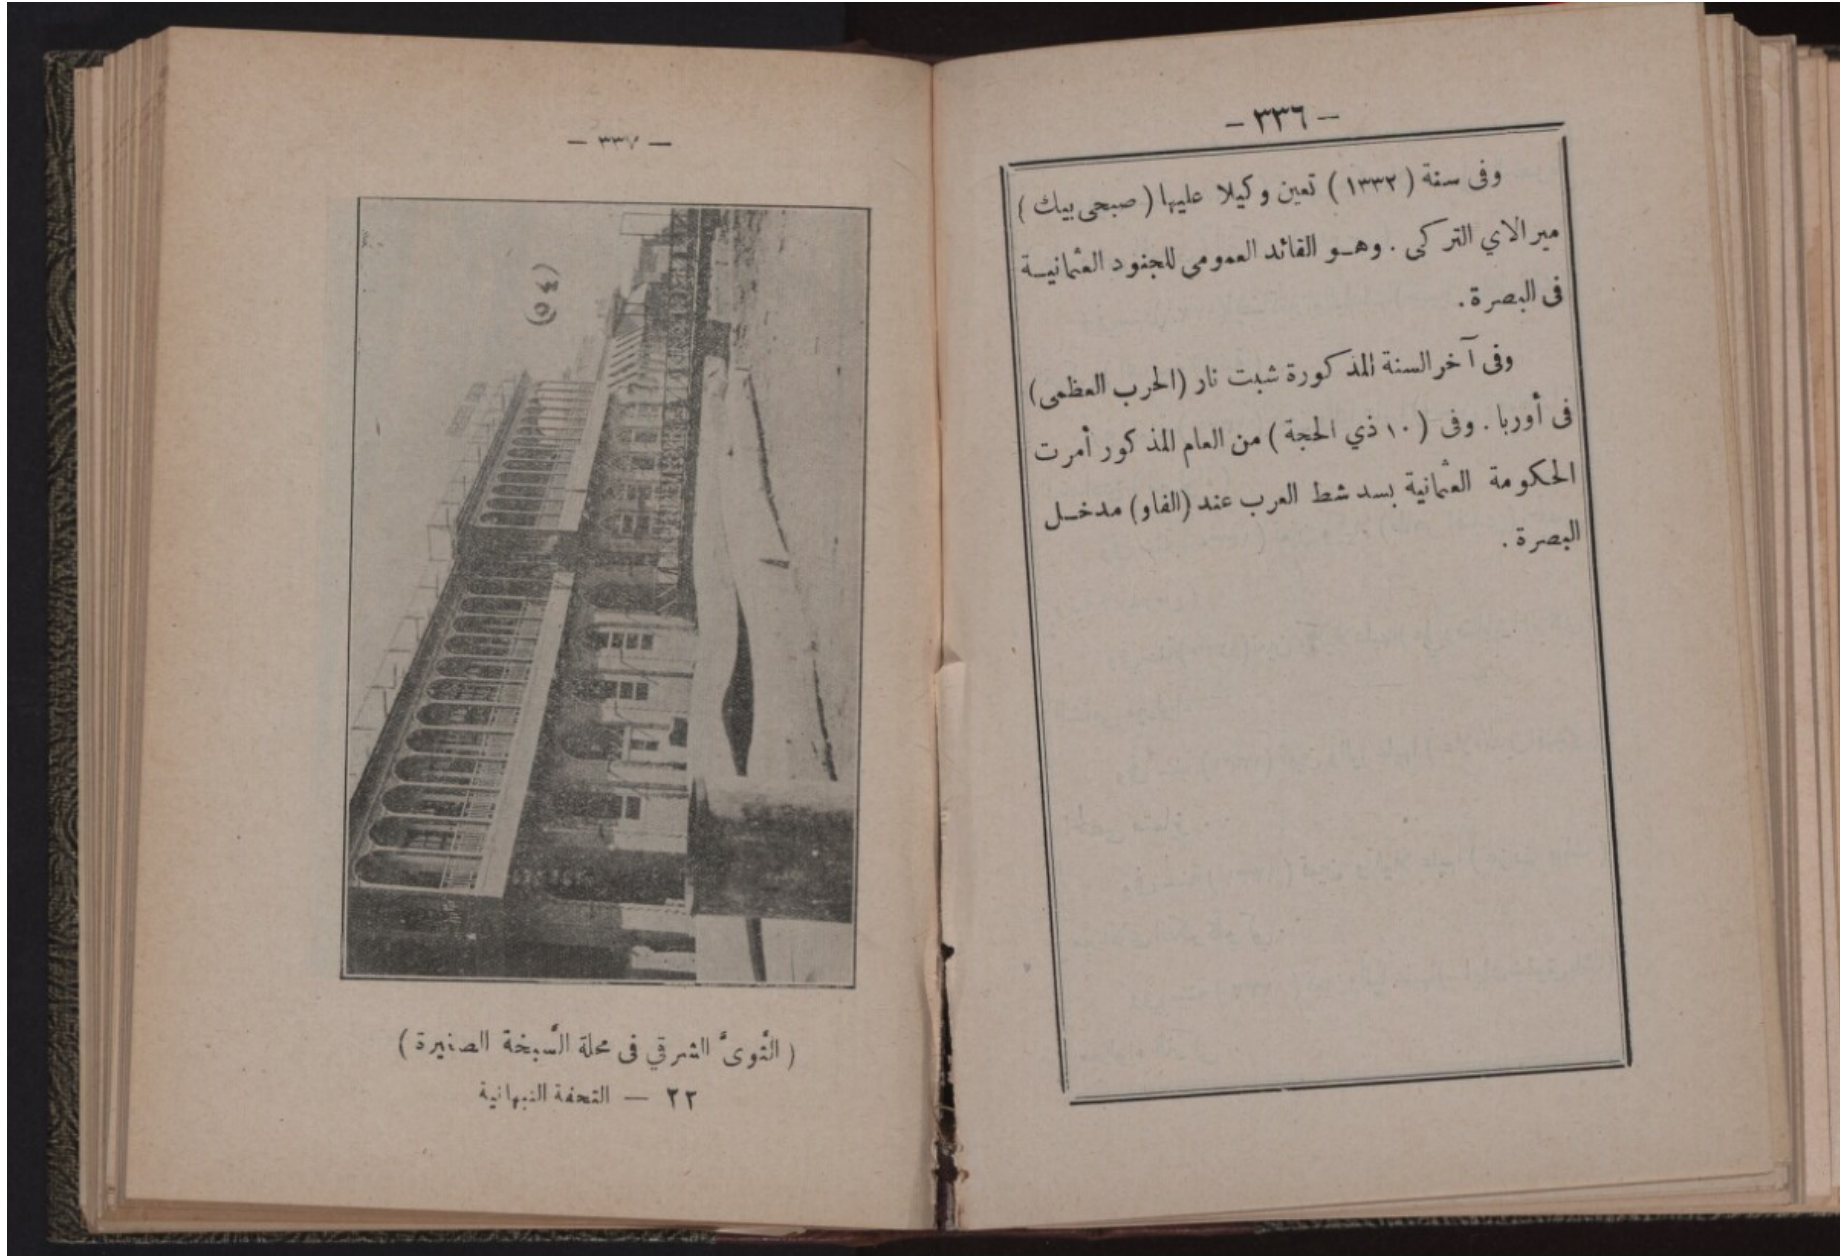 - ٣٣٦ -
وفى سنة ( ١٣٣٢ ) تعين وكيلا عليها ( صبحى بيك )
مير الاي التركى . وهو القائد العمومى للجنود العثمانية
فى البصرة .
وفى آخر السنة المذكورة شبت نار (الحرب العظمى)
فى أوربا . وفى ( ١٠ ذي الحجة ) من العام المذكور أمرت
الحكومة العثمانية بسد شط العرب عند (الفاو) مدخل
البصرة .
— ٣٣٧ —
(٣٥)
( الثَّوىُّ الشرقي فى محلة السَّبخة الصغيرة )
٢٢ — التحفة النبهانية